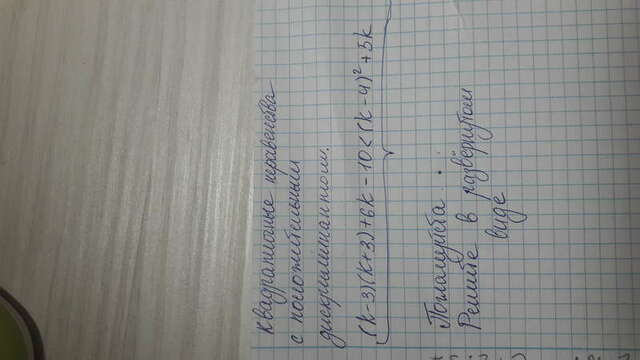 Квадратичные неравенства
с положительным
дискриминантом.
(k-3)(k+3)+6k-10<(k-4)²+5k
Пожалуйста
Решите в развёрнутом
виде